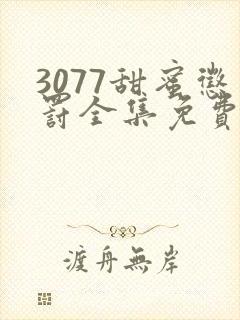 3077甜蜜懲
罸全集免費
渡舟無岸